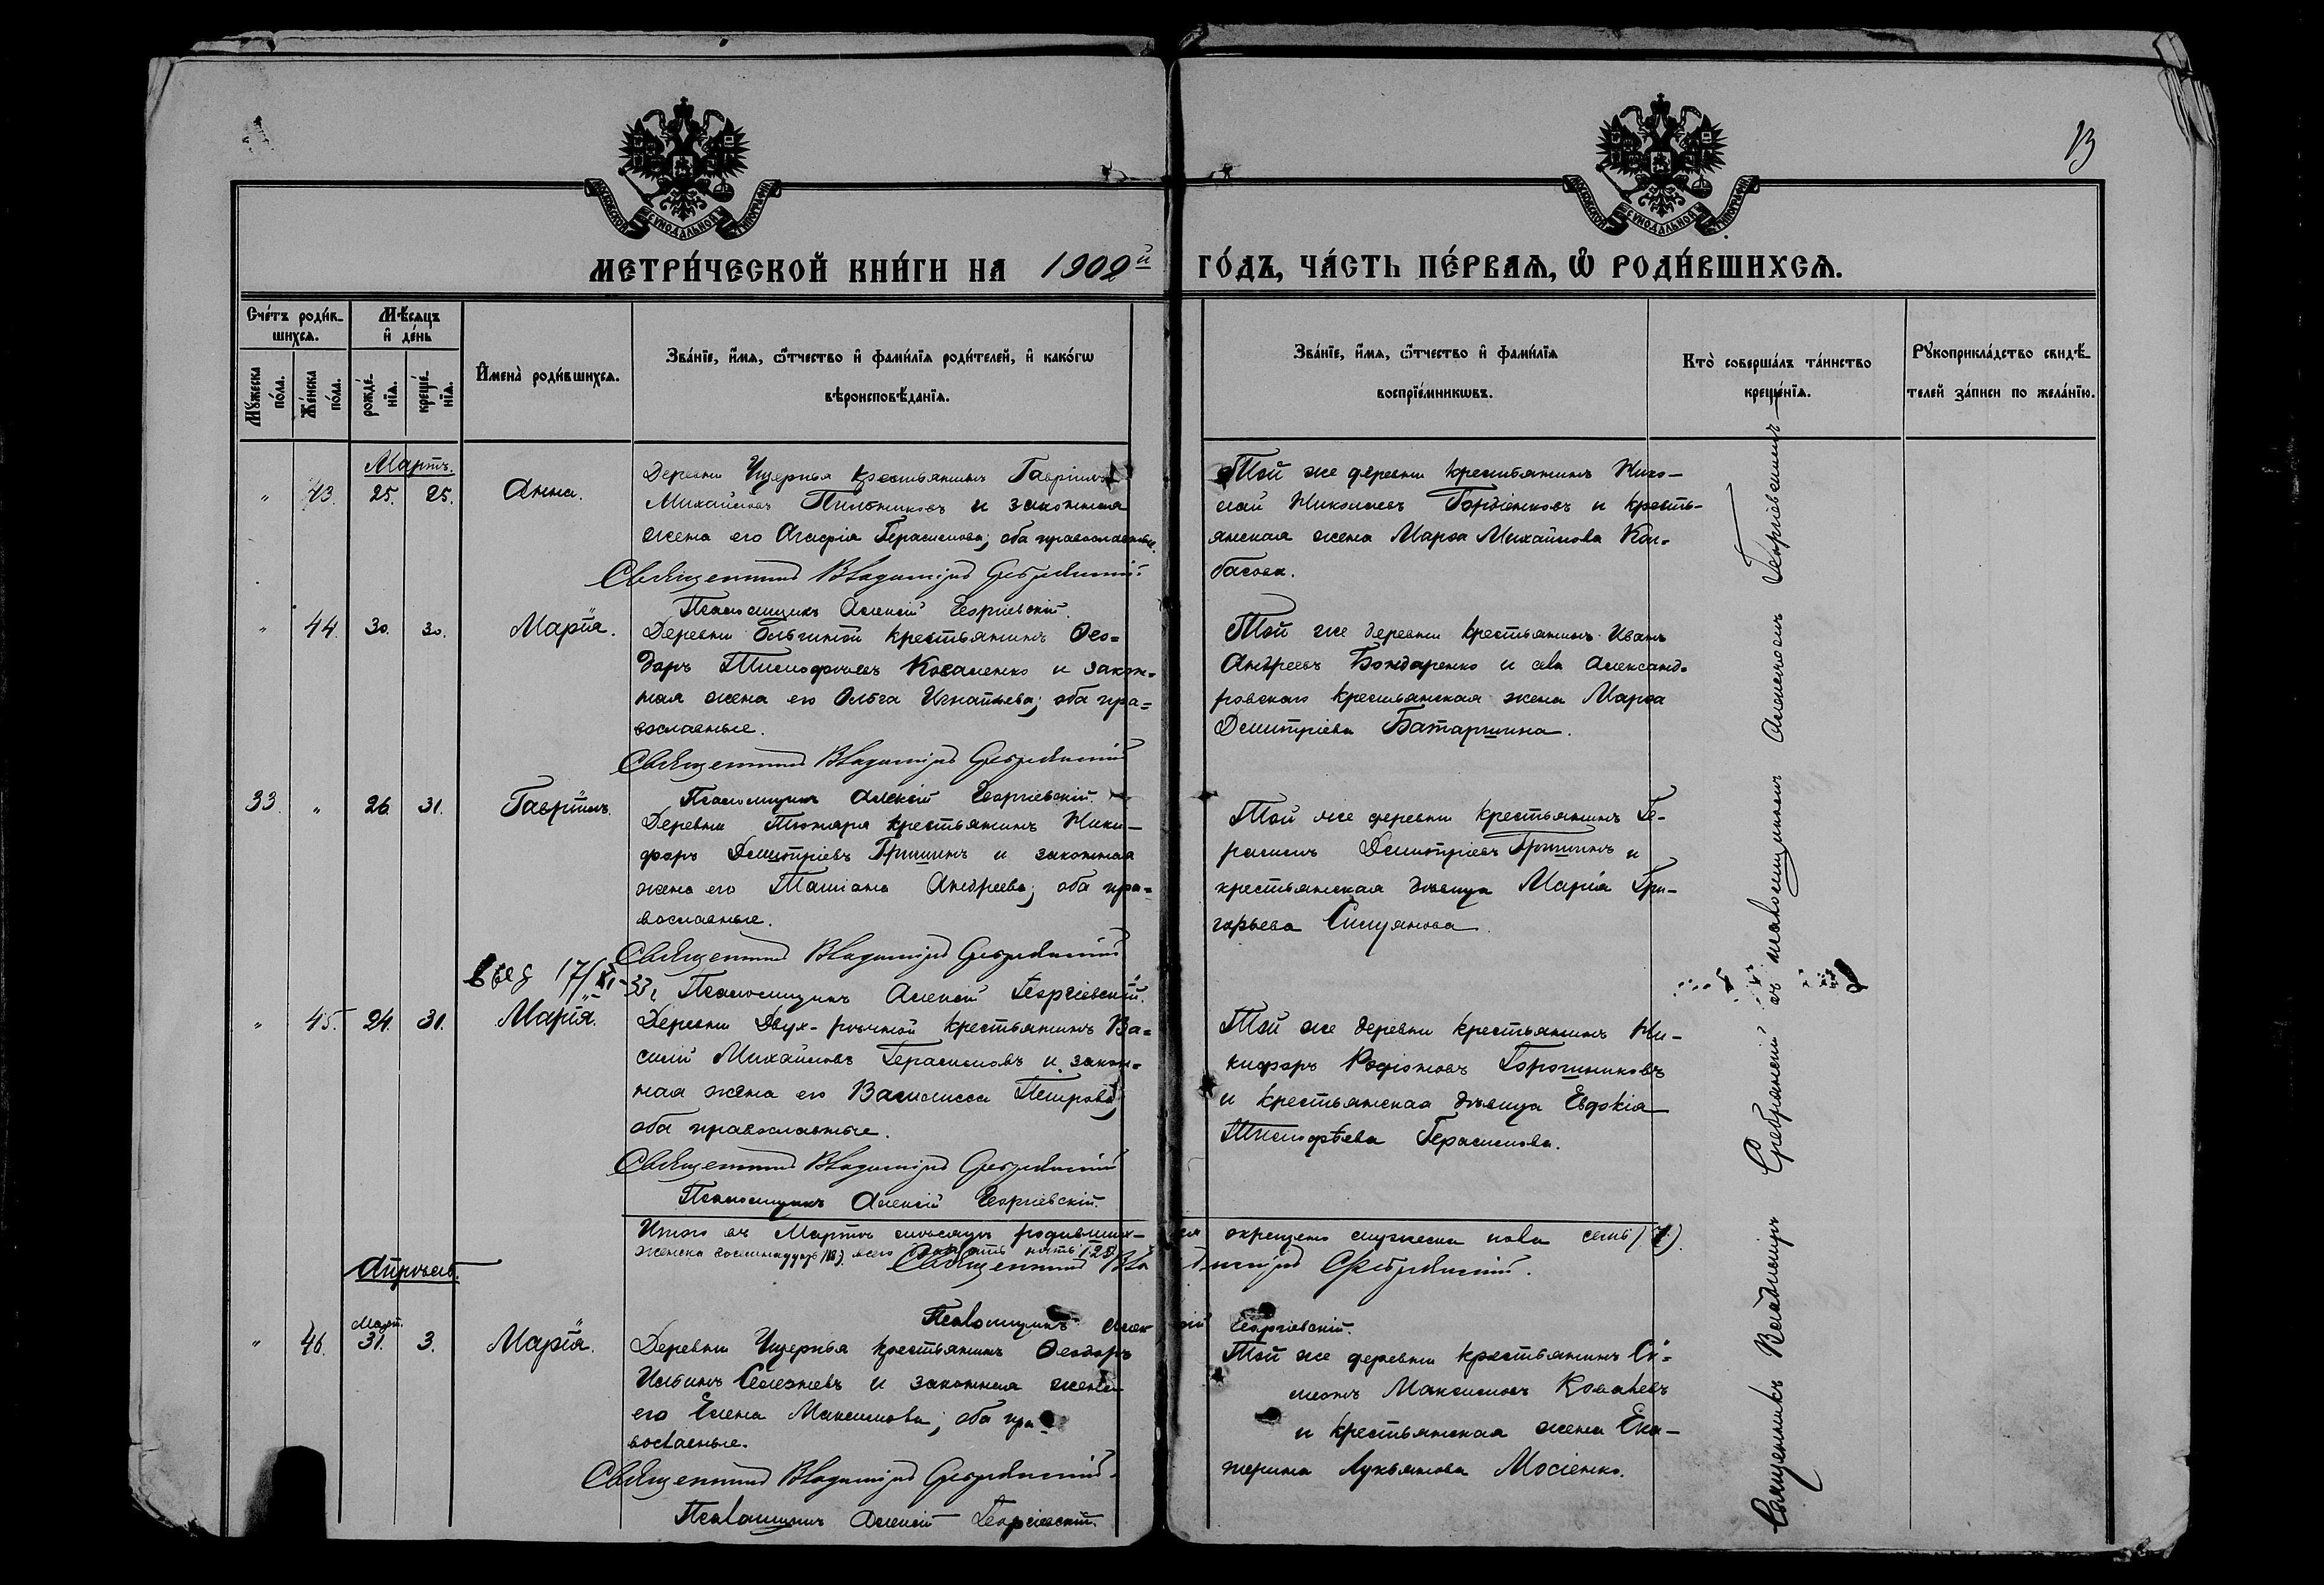 13
МОСКОВСКОЙ СѴНОДАЛЬНОЙ ТИПОГРАФІИ
МОСКОВСКОЙ СѴНОДАЛЬНОЙ ТИПОГРАФІИ
МЕТРИ́ЧЕСКОЙ КНИ́ГИ НА 1902й ГО́ДЪ, ЧА́СТЬ ПЕ́РВАѦ, Ѽ РОДИ́ВШИХСѦ.
Сче́тъ роди́вшихсѧ.
Мꙋ́жеска по́ла.
Же́нска по́ла.
Мѣ́сѧцъ и҆ де́нь
рожде́нїѧ.
креще́нїѧ.
И҆мена̀ роди́вшихсѧ.
Зва́нїе, и҆́мѧ, ѻ҆́тчество и҆ фами́лїѧ роди́телей, и҆ како́гѡ
вѣроисповѣ́данїѧ.
Зва́нїе, и҆́мѧ, ѻ҆́тчество и҆ фами́лїѧ
воспрїе́мникѡвъ.
Кто̀ соверша́лъ та́инство
креще́нїѧ.
Рꙋкоприкла́дство свидѣ́-
телей за́писи по жела́нїю.
Мартъ.
" 43. 25. 25. Анна.
Деревни Ищерья крестьянинъ Гавріилъ
Михайловъ Пильтиковъ и законная
жена его Агафія Герасимова; оба православные.
Священникъ Владиміръ Сребрянскій
Псаломщикъ Алексій Георгіевскій.
Той же деревни крестьянинъ Нико-
лай Николаевъ Гордіенковъ и кресть-
янская жена Марѳа Михайлова Кол-
басова.
" 44. 30. 30. Марія.
Деревни Ольгиной крестьянинъ Ѳео-
доръ Тимофѣевъ Коваленко и закон-
ная жена его Ольга Игнатьева; оба пра-
вославные.
Священникъ Владиміръ Сребрянскій
Псаломщикъ Алексій Георгіевскій.
Той же деревни крестьянинъ Иванъ
Андреевъ Бондаренко и села Александ-
ровскаго крестьянская жена Марѳа
Димитріева Батаршина.
33. " 26. 31. Гавріилъ.
Деревни крестьянинъ Ники-
форъ Димитріевъ Гришинъ и законная
жена его Татіана Андреева; оба пра-
вославные.
Священникъ Владиміръ Сребрянскій
Псаломщикъ Алексій Георгіевскій.
Той же деревни крестьянинъ Ге-
расимъ Димитріевъ Гришинъ и
крестьянская дѣвица Марія Гри-
горьева
17/XI-33г
" 45. 24. 31. Марія.
Деревни Двух-рѣчной крестьянинъ Ва-
силій Михайловъ Герасимовъ и закон-
ная жена его Василисса Петрова;
оба православные.
Священникъ Владиміръ Сребрянскій
Псаломщикъ Алексій Георгіевскій.
Той же деревни крестьянинъ Ни-
кифоръ Родіоновъ Горошниковъ
и крестьянская дѣвица Евдокія
Тимофѣева Герасимова.
Итого въ Мартѣ мѣсяцѣ родившихся окрещено мужеска пола семь (7).
женска восемнадцать (18) всего двадцать пять (25)
Священникъ Владиміръ Сребрянскій.
Псаломщикъ Алексій Георгіевскій.
Апрѣль.
" 46. Март. 31. 3. Марія.
Деревни Ищерья крестьянинъ Ѳеодоръ
Ильинъ Селезневъ и законная жена
его Елена Максимова; оба пра-
вославные.
Священникъ Владиміръ Сребрянскій
Псаломщикъ Алексій Георгіевскій.
Той же деревни крестьянинъ Си-
меонъ Максимовъ Ковалевъ
и крестьянская жена Ека-
терина Лукьянова Мосіенко.
Священникъ Владиміръ Сребрянскій съ псаломщикомъ Алексѣемъ Георгіевскимъ